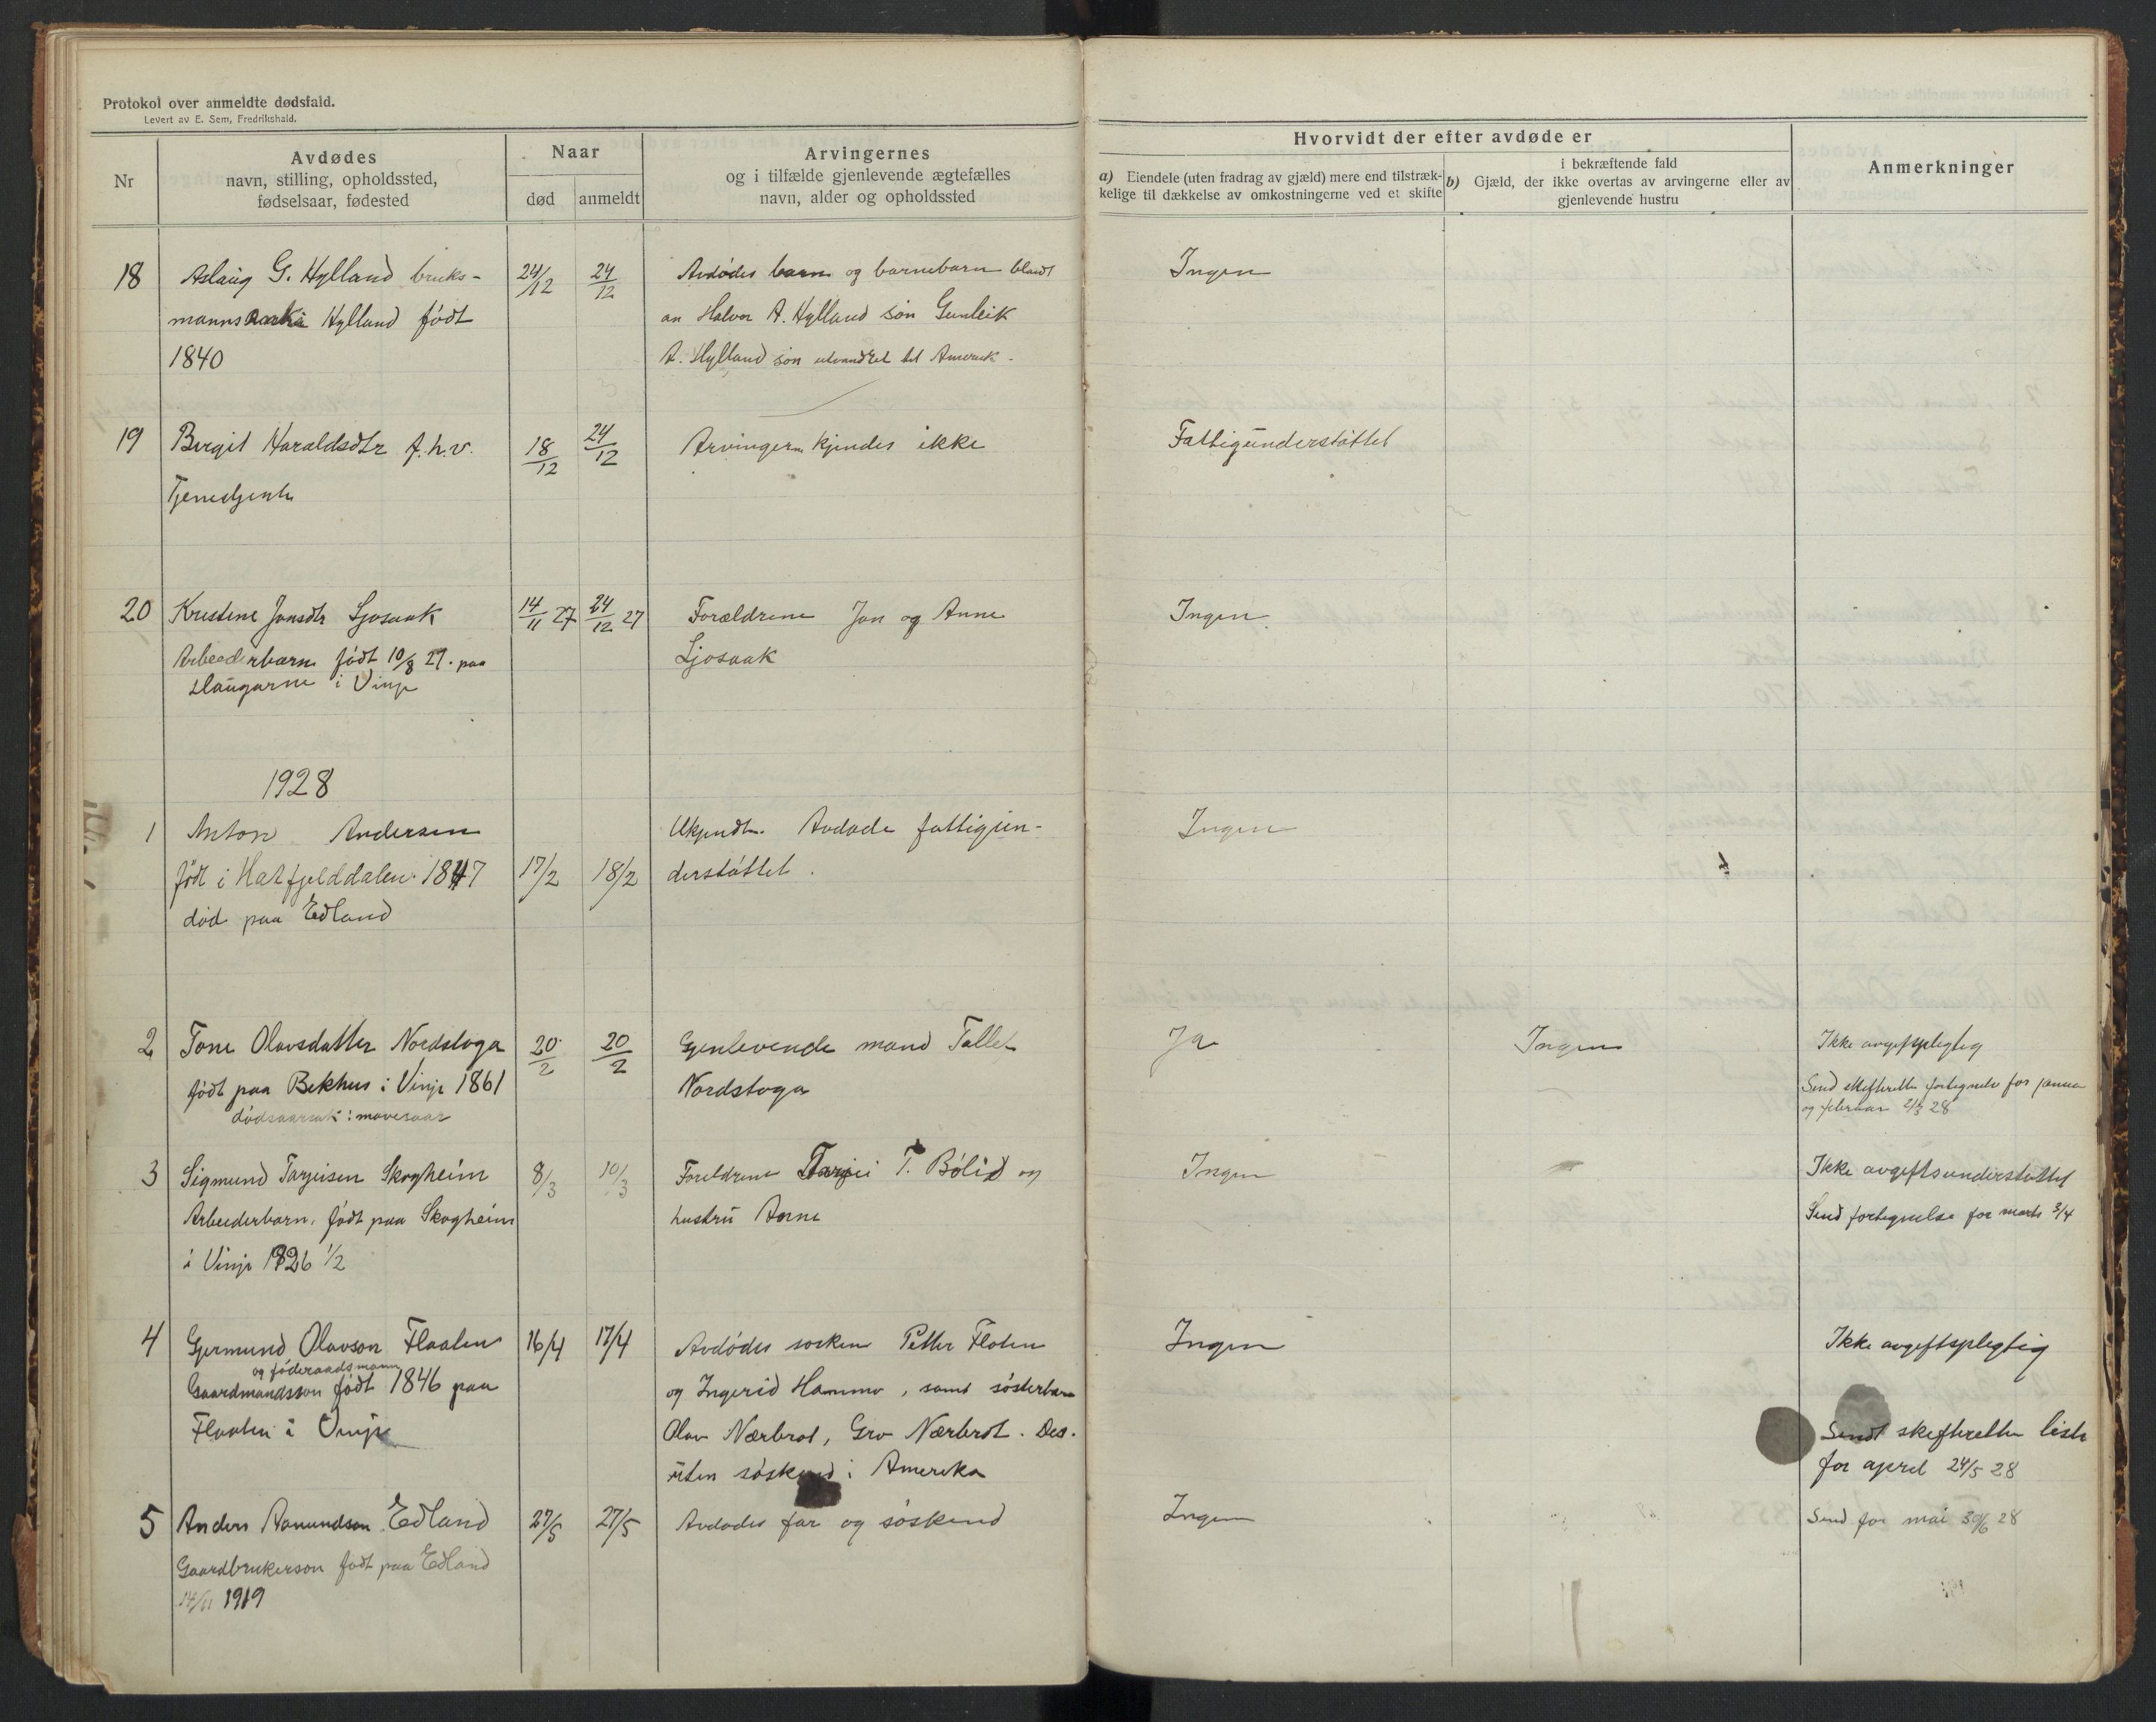 Protokol over anmeldte dødsfald.
Levert av E. Sem, Fredrikshald.
Nr
Avdødes
navn, stilling, opholdssted,
fødselsaar, fødested
Naar
død
anmeldt
Arvingernes
og i tilfælde gjenlevende ægtefælles
navn, alder og opholdssted
Hvorvidt der efter avdøde er
a) Eiendele (uten fradrag av gjæld) mere end tilstræk-
kelige til dækkelse av omkostningerne ved et skifte
i bekræftende fald
b) Gjæld, der ikke overtas av arvingerne eller av
gjenlevende hustru
Anmerkninger
18
Aslaug G. Hylland bruks-
manns Hylland født
1840
24/12
24/12
Avdødes barn og barnebarn blandt
an Halvor A. Hylland søn Gunleik
A. Hylland søn utvandret til Amerik.
Ingen
19
Birgit Haraldsdtr f.h.v.
Tjenestjente
18/12
24/12
Arvingern kjendes ikke
Fattigunderstøttet
20
Kristine Jonsdtr Ljosaak
Arbeederbarn født 10/8 27. paa
Haugarne i Vinje
14/11 27
24/12 27
Forældrene Jon og Anne
Ljosaak
Ingen
1928
1
Anton Andersen
født i Hatfjelddalen 1847
død paa Edland
17/2
18/2
Ukjendt. Avdøde fattigun-
derstøttet.
Ingen
2
Tone Olavsdatter Nordstoga
født paa Bekhus i Vinje 1861
dødsaarsak: mavesaar
20/2
20/2
Gjenlevende mand Tallef
Nordstoga
Ja
Ingen
Ikke avgiftsplegtig
Send skifteretten fortegnelse for januar
og februar 2/3 28
3
Sigmund Tarjeisen Skogheim
Arbeederbarn, født paa Skogheim
i Vinje 1926 1/2
8/3
10/3
Foreldrene Tarjei T. Bølid og
hustru Anne
Ingen
Ikke avgiftsunderstøttet
Send fortegnelse for marts 3/4
4
Gjermund Olavson Flaaten
og føderaadsmann
Gaardmandsson født 1846 paa
Flaaten i Vinje
16/4
17/4
Avdødes søsken Petter Floten
og Ingerid Hammo, samt søsterbarn
Olav Nærbrot, Gro Nærbrot. Des-
uten søskend i Amerika
Ingen
Ikke avgiftsplegtig
Sendt skifteretten liste
for april 24/5 28
5
Anders Aanundson Edland
Gaardbrukerson født paa Edland
14/11 1919
27/5
27/5
Avdødes far og søskend
Ingen
Send for mai 30/6 28